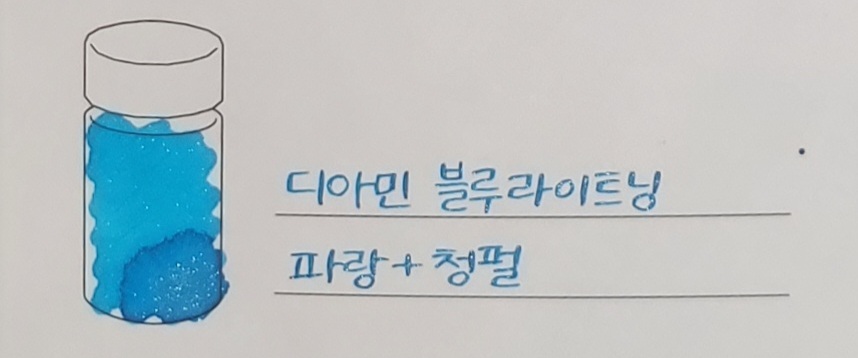 디아민 블루라이트닝
파랑+청펄